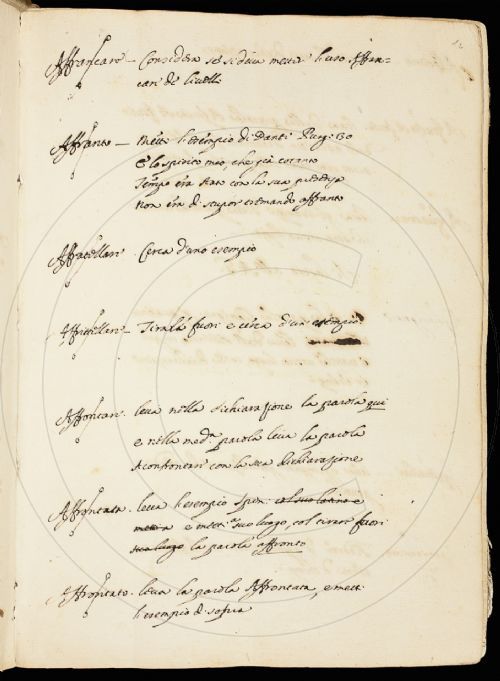 Affrancare – Considera se si deva metter l'uso Affran-
care de livelli
Affranto – Metti l'esempio di Dante Purg: 30
E lo spirito mio, che già cotanto
Tempo era stato con la sua presenza
Non era di stupor tremando affranto
Affratellare – Cerca d'uno esempio
– Tirala fuori e cerca d'un esempio
Affrontare. leva nella dichiarazione la parola qui
e nella med.ª parola leva la parola
Aconfrontare con la sua dichiarazione
Affrontata. leva l'esempio col suo latino e
e metti a suo luogo, col tirare fuori
suo luogo la parola affronto
Affrontato. leva la parola Affrontata, e metti
l'esempio di sopra